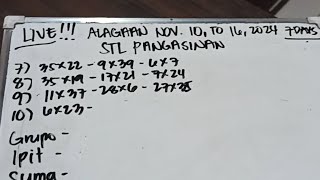 LIVE!!! ALAGAAN NOV. 10, TO 16, 2024 7DAYS
STL PANGASINAN
7) 35x22 - 9x39 - 6x7
8) 35x19 - 17x21 - 7x24
9) 11x37 - 28x6 - 27x38
10) 6x23 -
Grupo -
Ipit -
Suma -